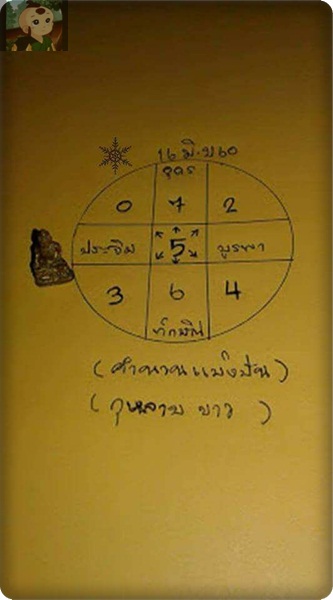 16 มิ.ย 60
อุดร
0 7 2
ประจิม 5 บูรพา
3 6 4
ทักษิณ
(คำนวนแบ่งปัน)
(กุหลาบ ขาว)